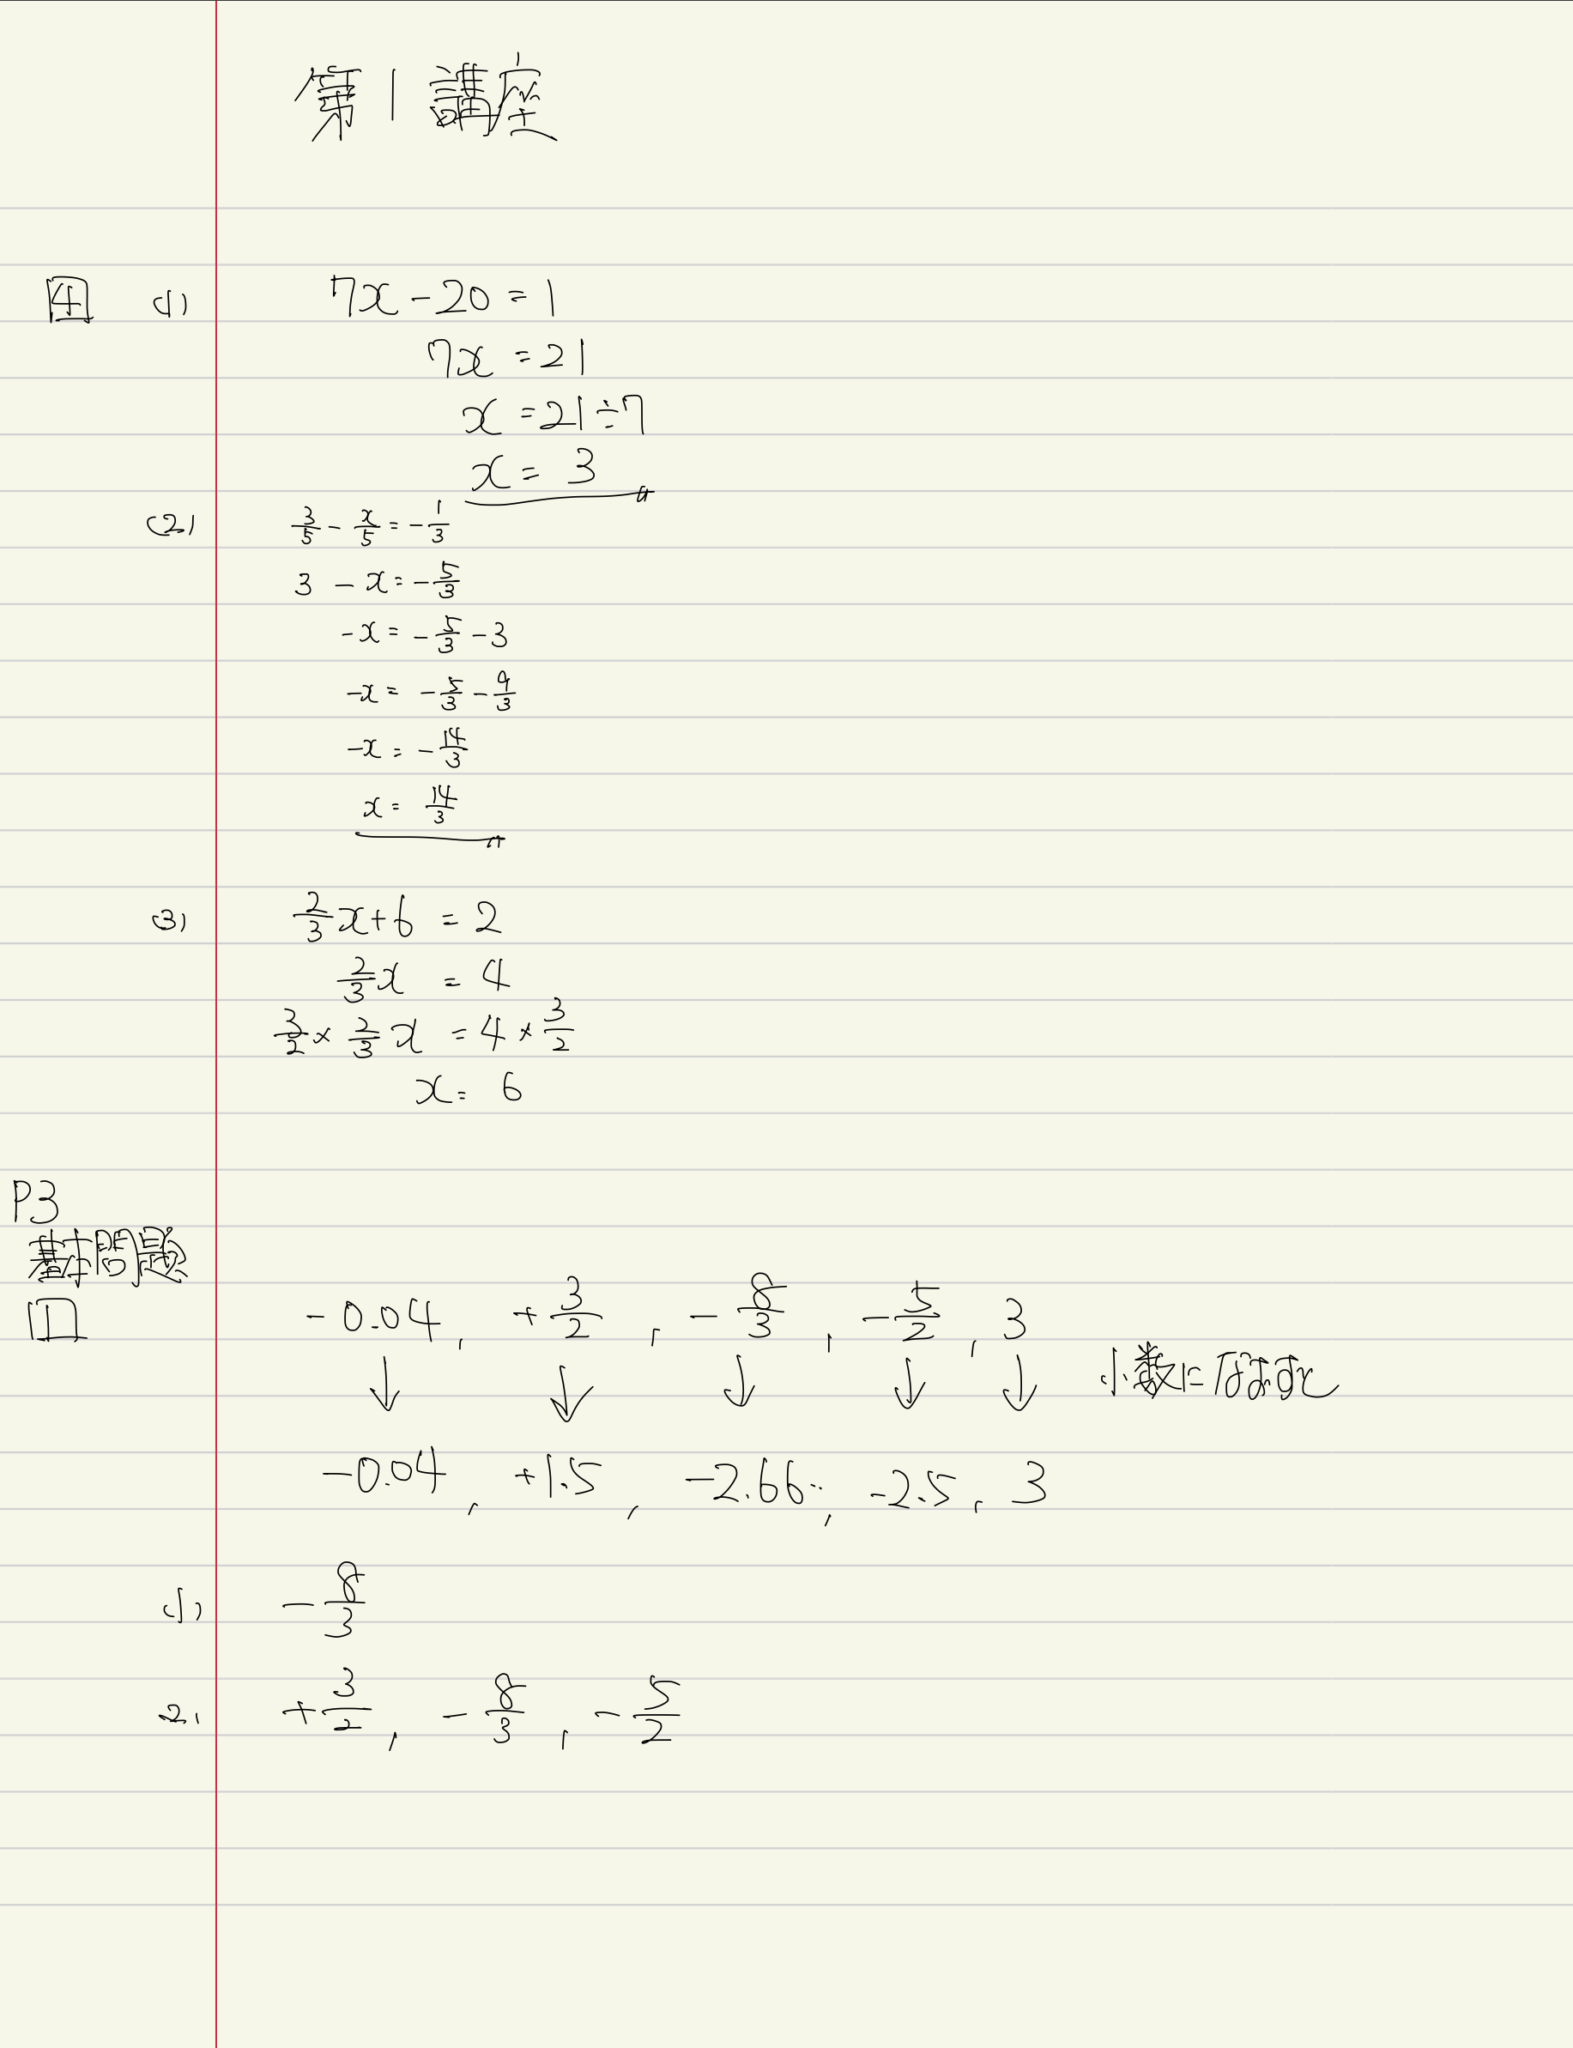 第1講座
4 (1) 7x-20=1
7x=21
x=21÷7
x=3
(2) 3/5 - x/5 = -1/3
3 - x = -5/3
-x = -5/3 - 3
-x = -5/3 - 9/3
-x = -14/3
x = 14/3
(3) 2/3x+6=2
2/3x=4
3/2×2/3x=4×3/2
x=6
P3
基本問題
1 -0.04, +3/2, -8/3, -5/2, 3
↓ ↓ ↓ ↓ ↓ 小数になおすと
-0.04, +1.5, -2.66.., -2.5, 3
(1) -8/3
2, +3/2, -8/3, -5/2